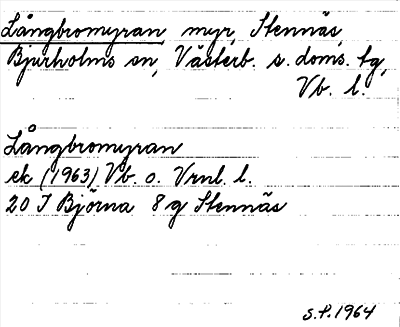 Långbromyran myr, Stennäs,
Bjurholms sn, Västerb. s. doms. tg,
Vb. l.
Långbromyran
ek (1963) Vb. o. Vrnl. l.
20 J Björna 8 g Stennäs
S.P. 1964